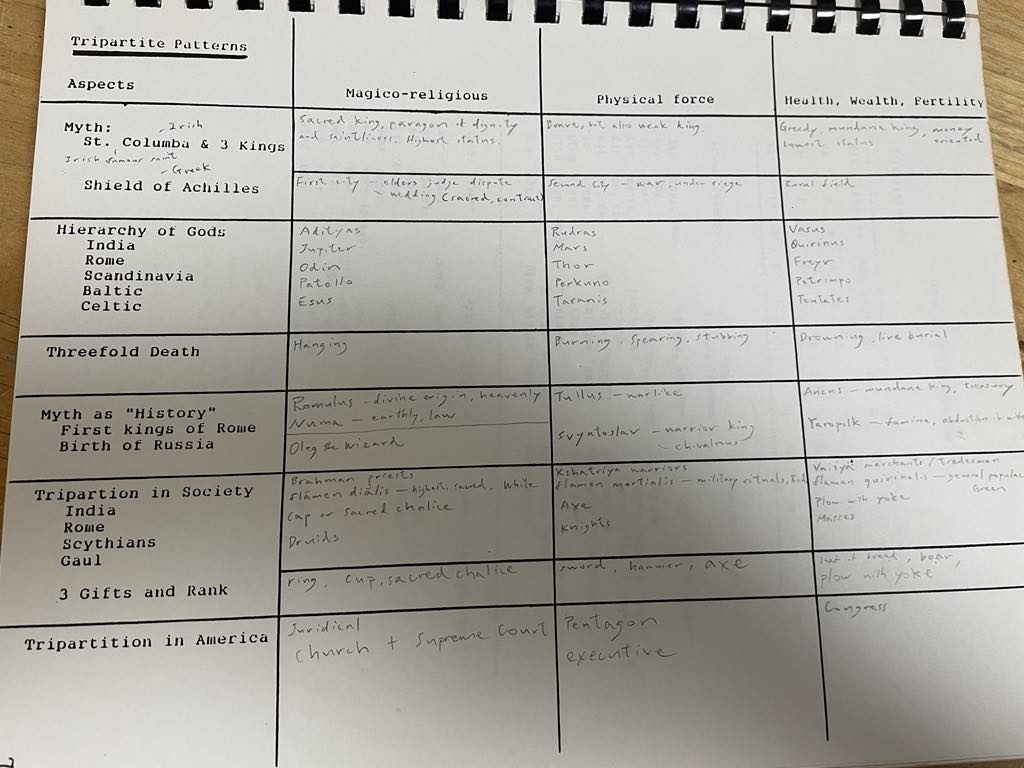 Tripartite Patterns
Aspects
Magico-religious
Physical force
Health, Wealth, Fertility
Myth:
Irish
St. Columba & 3 Kings
Irish famous saint
Sacred king, paragon of dignity
and saintliness. Highest status.
Brave, but also weak king.
Greedy, mundane king, money
oriented
Lowest status
- Greek
Shield of Achilles
First city - elders judge dispute
- wedding (sacred, contract)
Second City - war, under siege
Rural field
Hierarchy of Gods
India
Rome
Scandinavia
Baltic
Celtic
Adityas
Jupiter
Odin
Patollo
Esus
Rudras
Mars
Thor
Perkuno
Taranis
Vasus
Quirinus
Freyr
Potrimpo
Teutates
Threefold Death
Hanging
Burning, spearing, stubbing
Drowning, live burial
Myth as "History"
First kings of Rome
Birth of Russia
Romulus - divine origin, heavenly
Numa - earthly, law
Oleg the Wizard
Tullus - warlike
Svyatoslav - warrior king
- chivalrous
Ancus - mundane king, treasury
Yaropolk - famine, abduction
Tripartion in Society
India
Rome
Scythians
Gaul
Brahman priests
flamen dialis - highest, sacred, White
Cap or sacred chalice
Druids
Kshatriya warriors
flamen martialis - military rituals, Red
Axe
Knights
Vaisya merchants/tradesmen
flamen quirinalis - general populace
Green
Plow with yoke
Masses
3 Gifts and Rank
ring, cup, sacred chalice
sword, hammer, axe
loaf of bread, boar,
plow with yoke
Tripartition in America
Juridical
Church + Supreme Court
Pentagon
executive
Congress